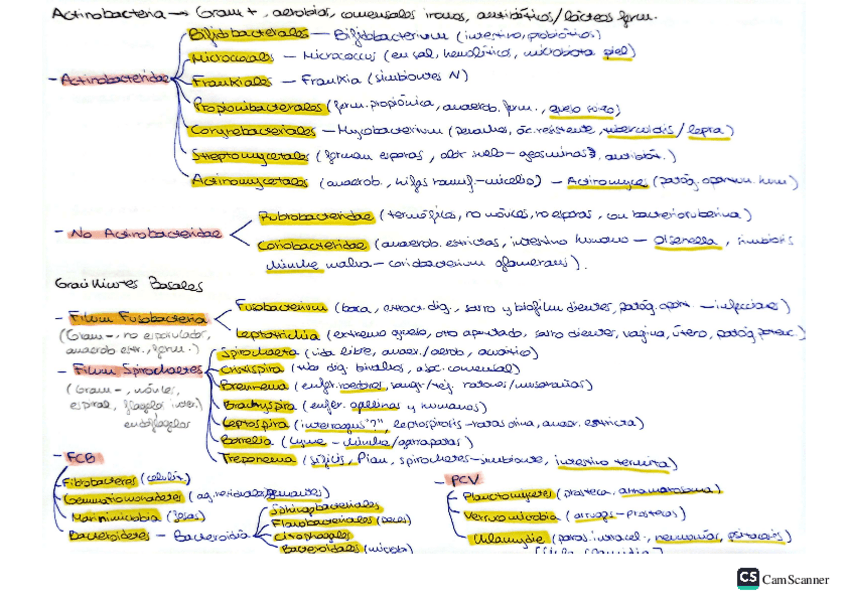 Actinobacteria → Gram +, aerobios, comensales inocuos, antibióticos/lácteos ferm.
- Actinobacteridae
Bifidobacteriales — Bifidobacterium (intestino, probióticos)
Micrococcales — Micrococcus (en sal, hemolíticos, microbiota piel)
Frankiales — Frankia (simbiontes N)
Propionibacteriales (ferm. propiónica, anaerob. ferm., queso suizo)
Corynebacteriales — Mycobacterium (ác. resistente, tuberculosis/lepra)
Streptomycetales (forman esporas, olor suelo - geosminas, antibiót.)
Actinomycetales (anaerob., hifas ramif. - micelio) — Actinomyces (patóg. oportun. hum)
- No Actinobacteridae
Rubrobacteridae (termófilos, no móviles, no esporas, con bacterioruberina)
Coriobacteridae (anaerob. estrictas, intestino humano — Olsenella, simbiosis
chinche malva - coriobacterium glomerans).
Gram negativos Basales
- Filum Fusobacteria
(Gram -, no esporulador,
anaerob estr., ferm.)
Fusobacterium (boca, tract. dig., sarro y biofilm dientes, patóg. oport. - infecciones)
Leptotrichia (extremo agudo, otro apuntado, sarro dientes, vagina, útero, patóg. potenc.)
- Filum Spirochaetes
(Gram -, móviles,
espiral, flagelos inter.)
endoflagelos
Spirochaeta (vida libre, anaer./aerob, acuático)
Cristispira (tubo dig. bivalvos, asoc. comensal)
Brevinema (enfer. roedores, sang./tej. ratones/musarañas)
Brachyspira (enfer. gallinas y humanos)
Leptospira (interrogans "?", leptospirosis - ratas orina, aerob. estricta)
Borrelia (Lyme - chinche/garrapatas)
Treponema (sífilis, Pian, spirochetes - simbionte, intestino termita)
- FCB
Fibrobacteres (celulosa)
Gemmatimonadetes (ag. residuales/)
Marinimicrobia (fosas)
Bacteroidetes — Bacteroidia
Sphingobacteriales
Flavobacteriales (peces)
Citophagales
Bacteroidales (microbi)
- PCV
Planctomycetes (prosteca, anammoxosoma)
Verrucomicrobia (arrugas - prostecas)
Chlamydie (paras. intracel., neumonías, psitacosis)
CS CamScanner